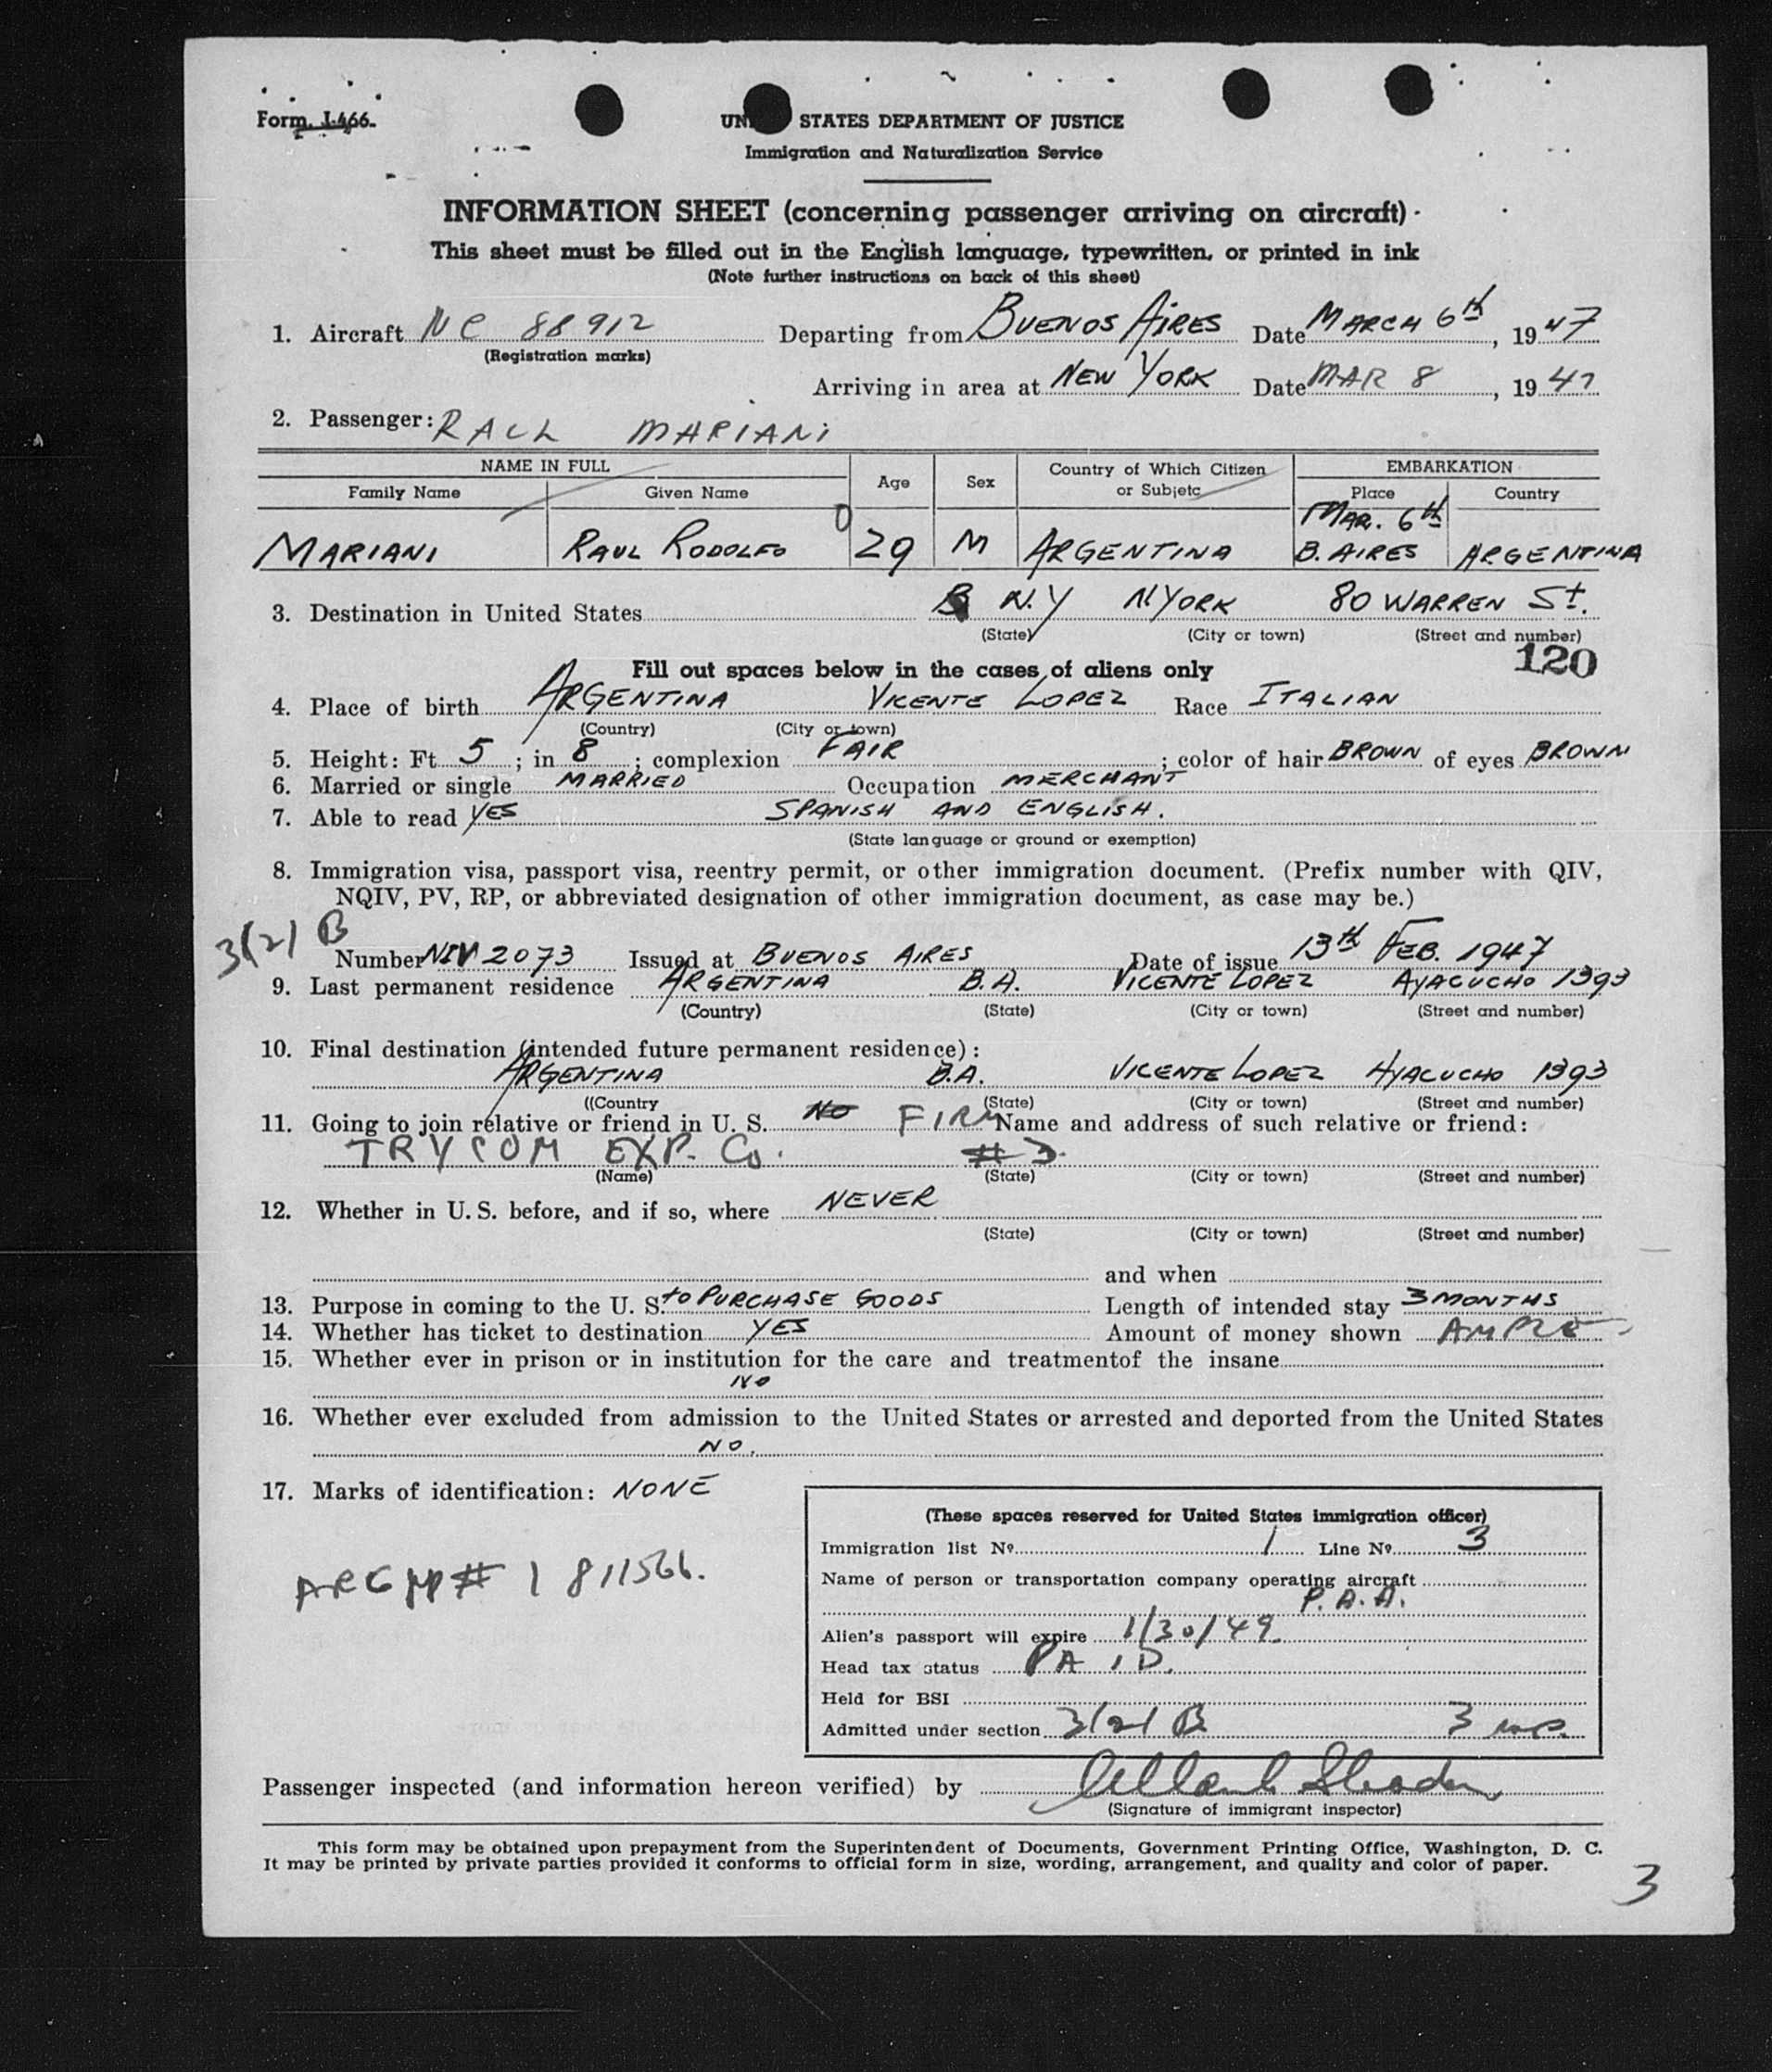 Form I-466.
UN STATES DEPARTMENT OF JUSTICE
Immigration and Naturalization Service
INFORMATION SHEET (concerning passenger arriving on aircraft)
This sheet must be filled out in the English language, typewritten, or printed in ink
(Note further instructions on back of this sheet)
1. Aircraft NC 88912 Departing from BUENOS AIRES Date MARCH 6th, 1947
(Registration marks)
Arriving in area at NEW YORK Date MAR 8, 1947
2. Passenger: RAUL MARIANI
NAME IN FULL Age Sex Country of Which Citizen or Subjetc EMBARKATION
Family Name Given Name Place Country
MAR. 6th
MARIANI RAUL RODOLFO 29 M ARGENTINA B. AIRES ARGENTINA
3. Destination in United States N.Y N.YORK 80 WARREN St.
(State) (City or town) (Street and number)
120
Fill out spaces below in the cases of aliens only
4. Place of birth ARGENTINA VICENTE LOPEZ Race ITALIAN
(Country) (City or town)
5. Height: Ft 5 ; in 8 ; complexion FAIR ; color of hair BROWN of eyes BROWN
6. Married or single MARRIED Occupation MERCHANT
7. Able to read YES SPANISH AND ENGLISH.
(State language or ground or exemption)
8. Immigration visa, passport visa, reentry permit, or other immigration document. (Prefix number with QIV,
NQIV, PV, RP, or abbreviated designation of other immigration document, as case may be.)
3(2) B
Number NIV 2073 Issued at BUENOS AIRES Date of issue 13th FEB. 1947
9. Last permanent residence ARGENTINA B.A. VICENTE LOPEZ AYACUCHO 1393
(Country) (State) (City or town) (Street and number)
10. Final destination (intended future permanent residence):
ARGENTINA B.A. VICENTE LOPEZ AYACUCHO 1393
((Country (State) (City or town) (Street and number)
11. Going to join relative or friend in U. S. NO FIRM Name and address of such relative or friend:
TRYCOM EXP. Co. # 3.
(Name) (State) (City or town) (Street and number)
12. Whether in U. S. before, and if so, where NEVER
(State) (City or town) (Street and number)
and when
13. Purpose in coming to the U. S. to PURCHASE GOODS Length of intended stay 3 MONTHS
14. Whether has ticket to destination YES Amount of money shown AMPLE
15. Whether ever in prison or in institution for the care and treatmentof the insane
NO
16. Whether ever excluded from admission to the United States or arrested and deported from the United States
NO.
17. Marks of identification: NONE
ARG pp # 1 811566.
(These spaces reserved for United States immigration officer)
Immigration list No 1 Line No 3
Name of person or transportation company operating aircraft
P.A.A.
Alien's passport will expire 1/30/49.
Head tax status PAID.
Held for BSI
Admitted under section 3(2) B 3
Passenger inspected (and information hereon verified) by
(Signature of immigrant inspector)
This form may be obtained upon prepayment from the Superintendent of Documents, Government Printing Office, Washington, D. C.
It may be printed by private parties provided it conforms to official form in size, wording, arrangement, and quality and color of paper.
3